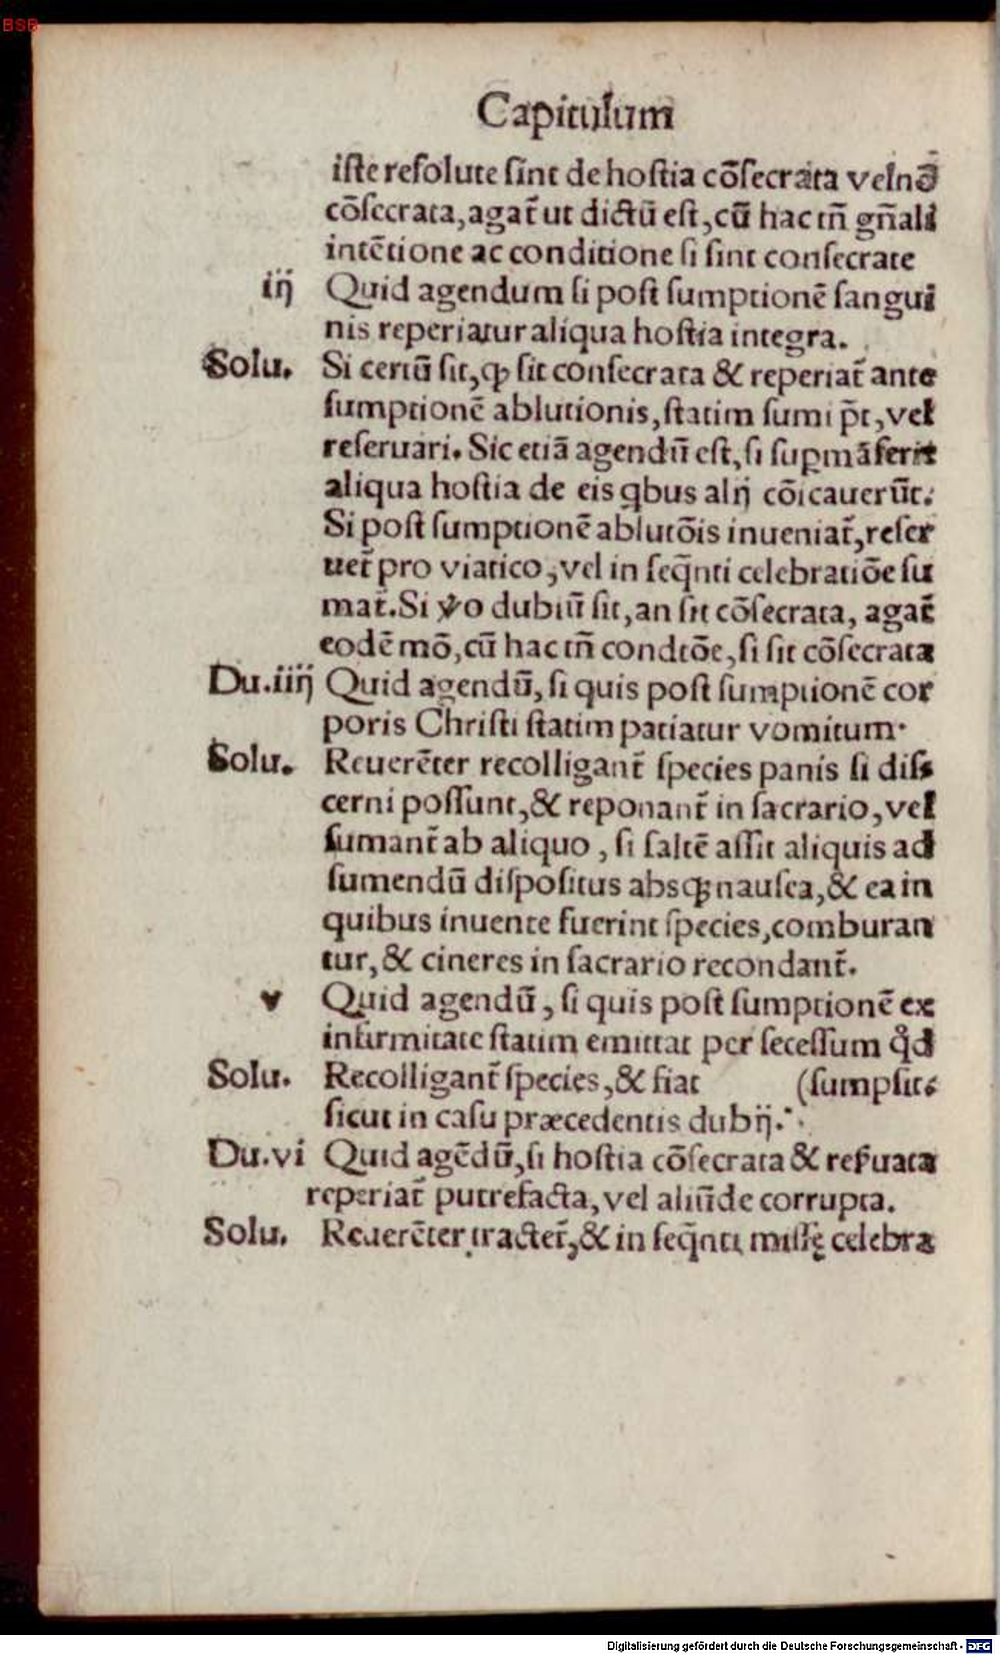 BSB
Capitulum
iste resolute sint de hostia cõsecrata vel nõ
cõsecrata, agat᷑ ut dictũ est, cũ hac tñ gñali
intẽtione ac conditione si sint consecrate
iij Quid agendum si post sumptionẽ sangui
nis reperiatur aliqua hostia integra.
Solu. Si certũ sit, ꝙ sit consecrata & reperiat᷑ ante
sumptionẽ ablutionis, statim sumi p̃t, vel
reseruari. Sic etiã agendũ est, si suꝑmãserit
aliqua hostia de eis qbus alij cõicauerũt.
Si post sumptionẽ ablutõis inueniat᷑, reser
uet᷑ pro viatico, vel in seq̃nti celebratiõe su
mat᷑. Si ṽo dubiũ sit, an sit cõsecrata, agat᷑
eodẽ mõ, cũ hac tñ condtõe, si sit cõsecrata
Du.iiij Quid agendũ, si quis post sumptionẽ cor
poris Christi statim patiatur vomitum.
Solu. Reuerẽter recolligant᷑ species panis si dis
cerni possunt, & reponant᷑ in sacrario, vel
sumant᷑ ab aliquo, si saltẽ assit aliquis ad
sumendũ dispositus absqꝫ nausea, & ea in
quibus inuente fuerint species, comburan
tur, & cineres in sacrario recondant᷑.
v Quid agendũ, si quis post sumptionẽ ex
infirmitate statim emittat per secessum qd̾
Solu. Recolligant᷑ species, & fiat (sumpsit.
sicut in casu præcedentis dubij.
Du.vi Quid agẽdũ, si hostia cõsecrata & reẜuata
reperiat᷑ putrefacta, vel aliũde corrupta.
Solu. Reuerẽter tractet᷑, & in seq̃nti missę celebra
Digitalisierung gefördert durch die Deutsche Forschungsgemeinschaft - DFG